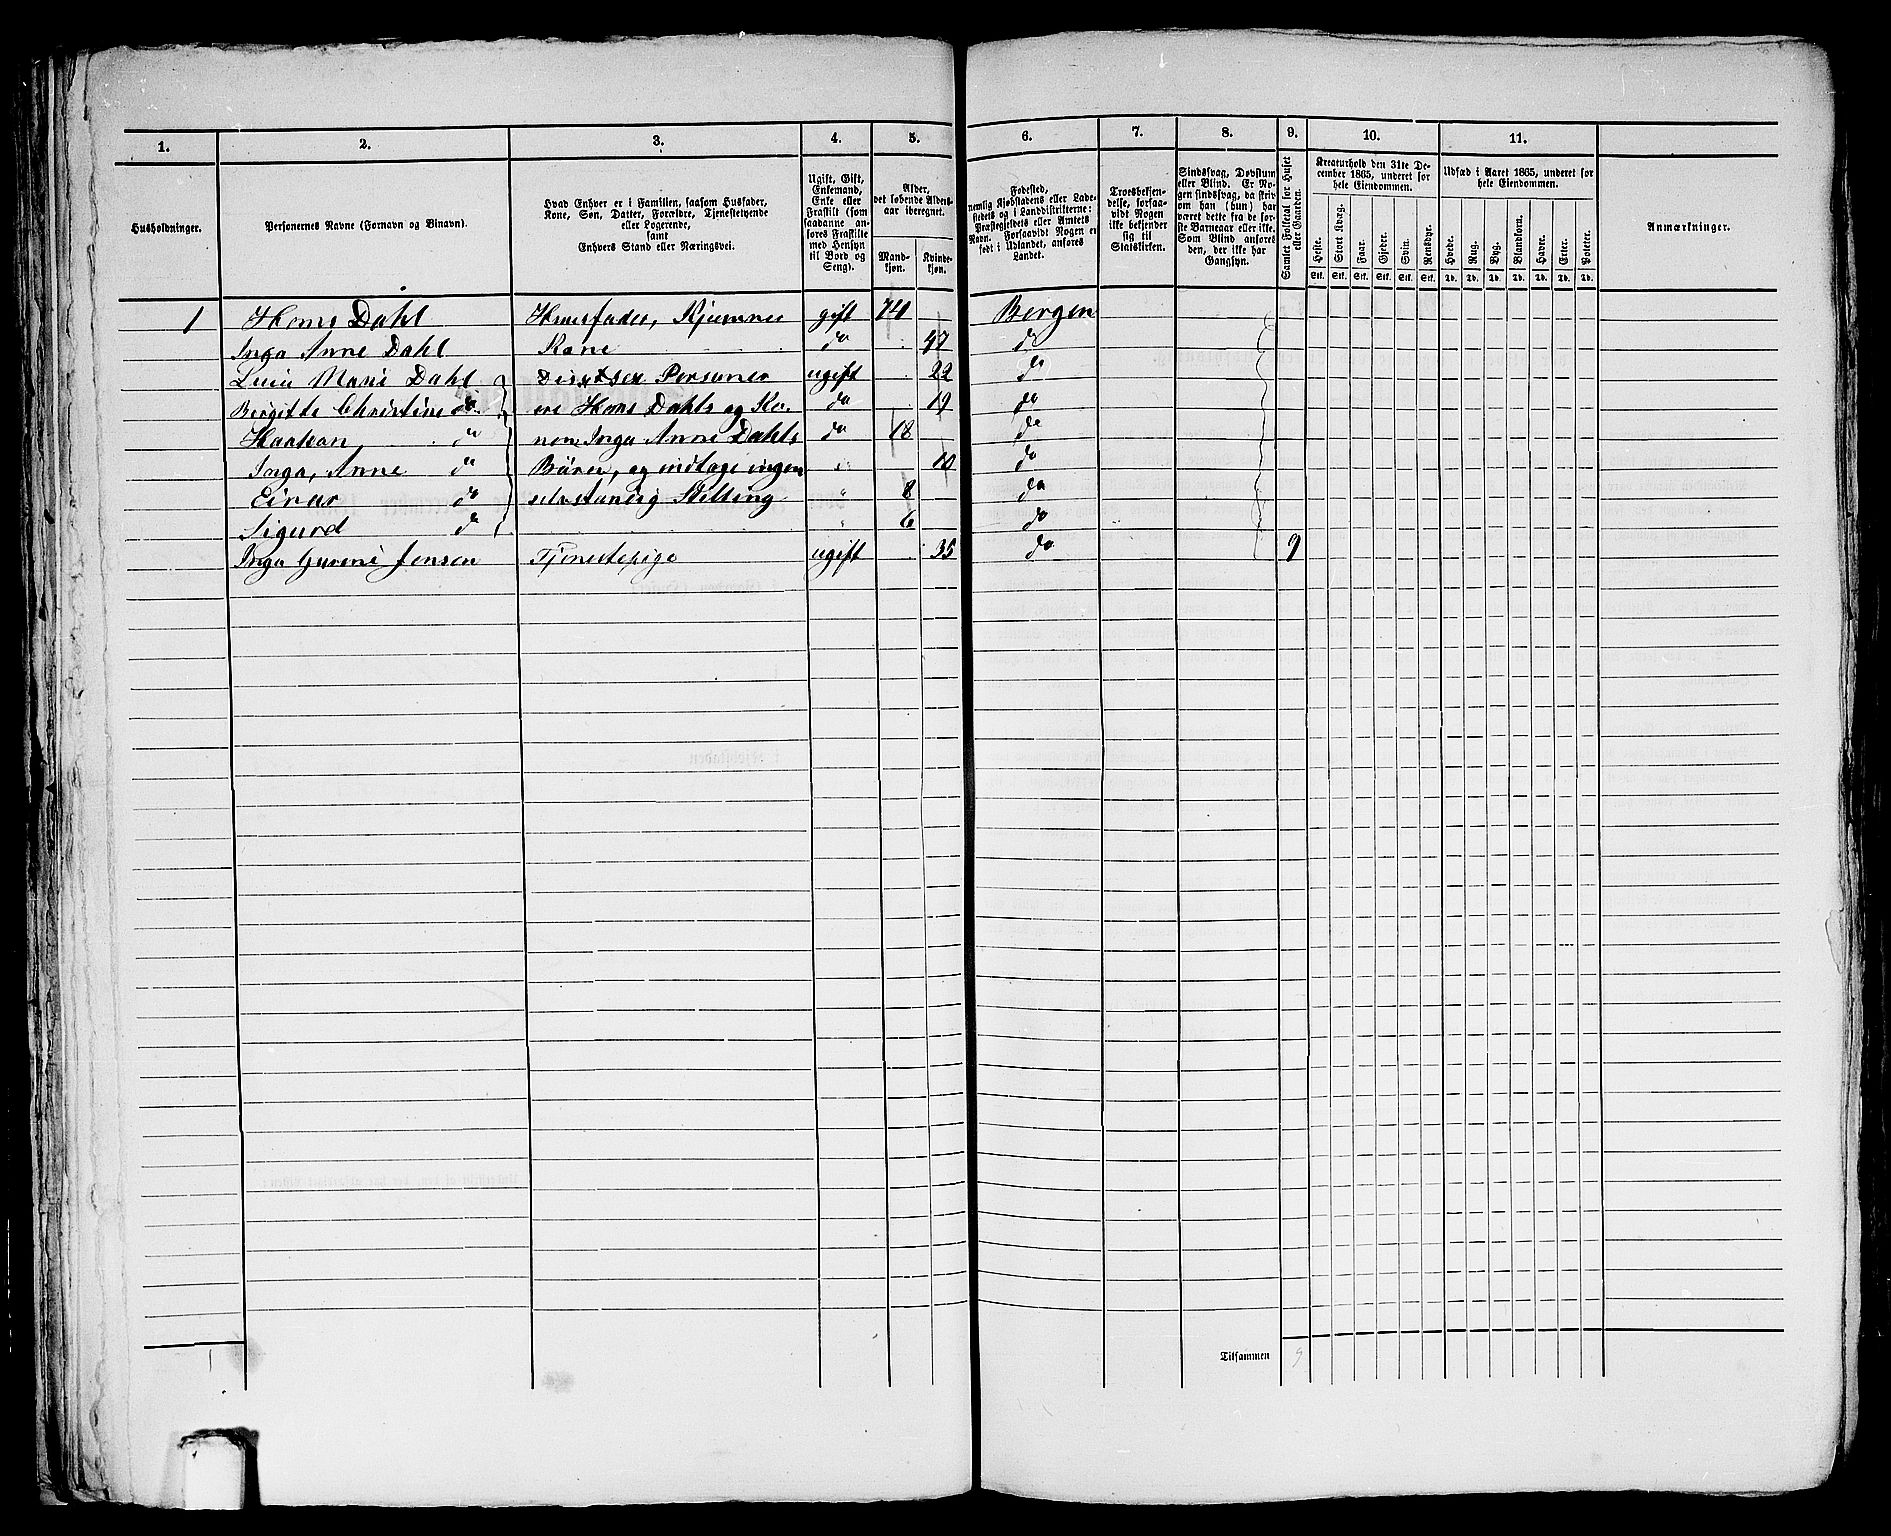 1. 2. 3. 4. 5. 6. 7. 8. 9. 10. 11.
Husholdninger.
Personernes Navne (Fornavn og Binavn).
Hvad Enhver er i Familien, saasom Husfader,
Kone, Søn, Datter, Forældre, Tjenestetyende
eller Logerende,
samt
Enhvers Stand eller Næringsvei.
Ugift, Gift,
Enkemand,
Enke eller
Fraskilt (som
saadanne an-
føres Fraskilte
med Hensyn
til Bord og
Seng).
Alder,
det løbende Alders-
aar iberegnet.
Mand-
kjøn.
Kvinde-
kjøn.
Fødested,
nemlig Kjøbstadens eller Lade-
stedets og i Landdistrikterne:
Præstegjeldets eller Amtets
Navn. Forsaavidt Nogen er
født i Udlandet, anføres
Landet.
Troesbekjen-
delse, forsaa-
vidt Nogen
ikke bekjender
sig til
Statskirken.
Sindssvag, Døvstum
eller Blind. Er No-
gen sindssvag, da skriv
om han (hun) har
været dette fra de før-
ste Barneaar eller ikke.
Som Blind anføres
den, der ikke har
Gangsyn.
Samlet Folketal for Huset
eller Gaarden.
Kreaturhold den 31te De-
cember 1865, underet for
hele Eiendommen.
Heste. Stort Kvæg. Faar. Gjeder. Svin. Rensdyr.
Stk. Stk. Stk. Stk. Stk. Stk.
Udsæd i Aaret 1865, underet for
hele Eiendommen.
Hvede. Rug. Byg. Blandkorn. Havre. Erter. Poteter.
Td. Td. Td. Td. Td. Td. Td.
Anmærkninger.
1 Hans Dahl Huusfader, Kjæmner gift 74 Bergen
Inga Anne Dahl Kone do 47 do
Marie Dahl Disse sex Personer ugift 22 do
Bergitte Christine do ere Hans Dahls og Ko- do 19 do
Haakan do nen Inga Anne Dahls do 18 do
Inga, Anne do Børn, og indtage ingen " 10 do
Einar do selvstændig Stilling " 8 do
Sigurd do " 6 do
Inga Jensen Tjenestepige ugift 35 do 9
1 Tilsammen 9